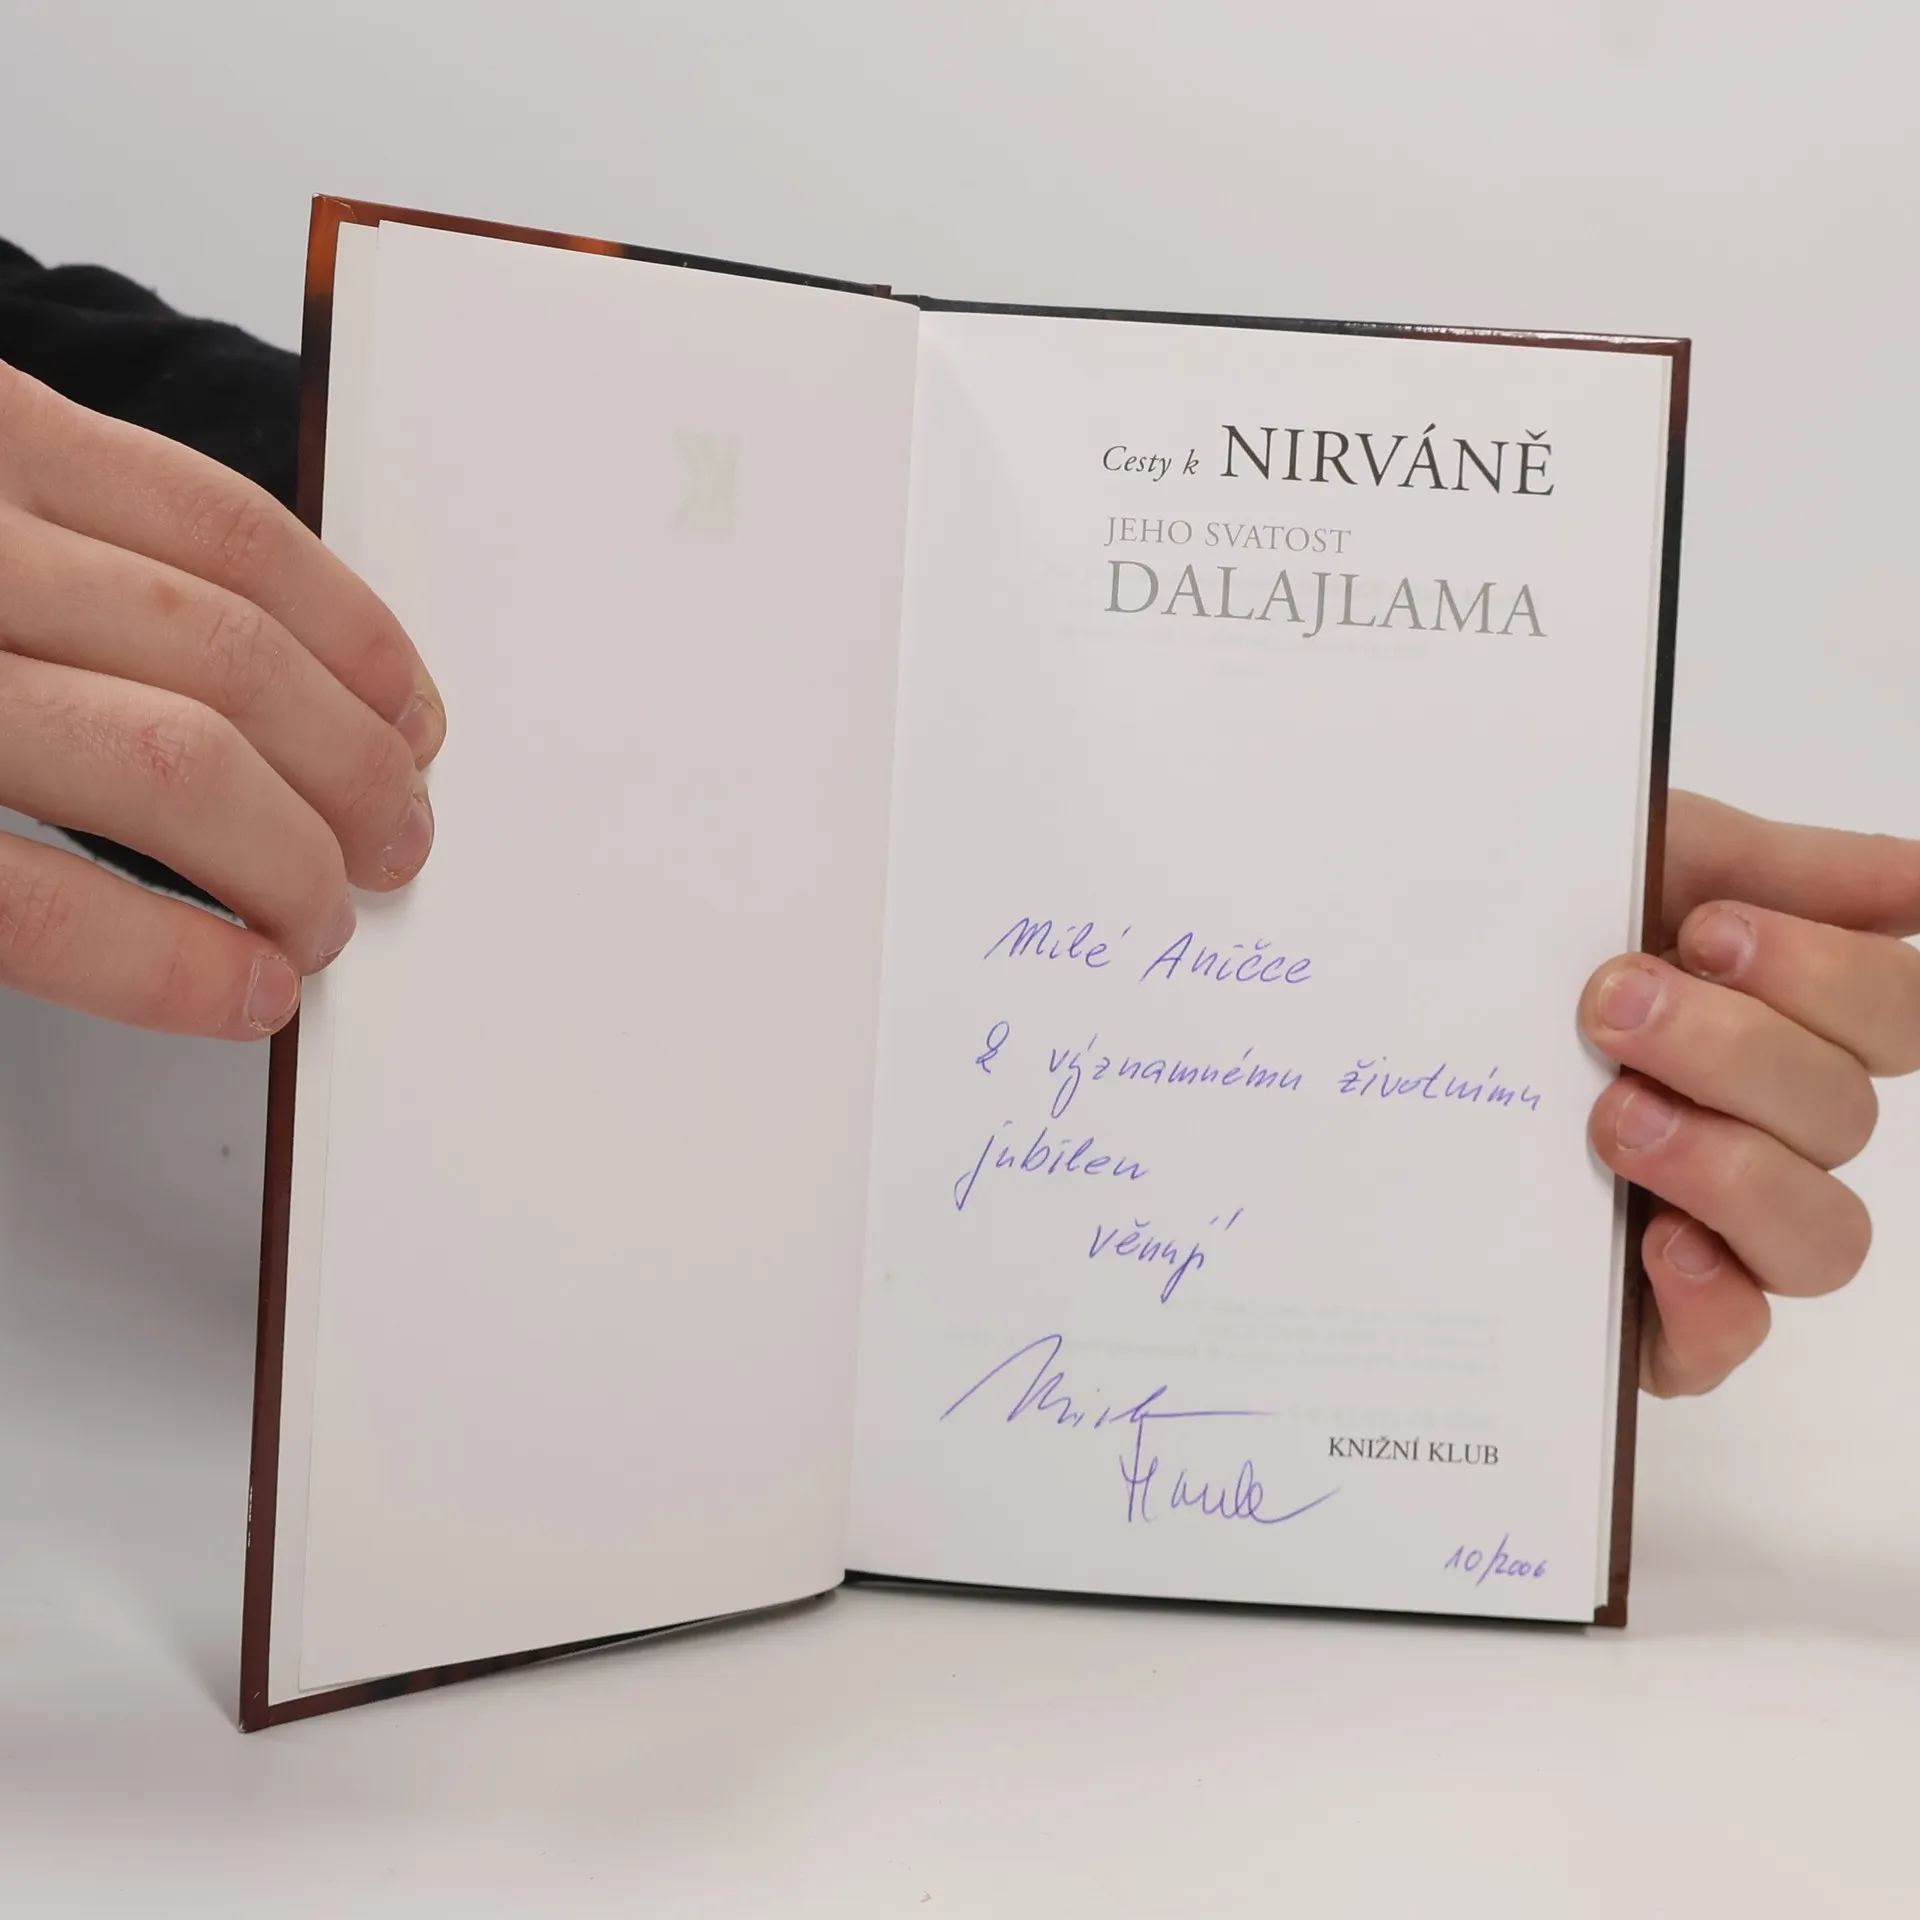 Cesty k NIRVÁNĚ
JEHO SVATOST
DALAJLAMA
Milé Aničce
K významnému životnímu
jubileu
věnují
KNIŽNÍ KLUB
10/2006